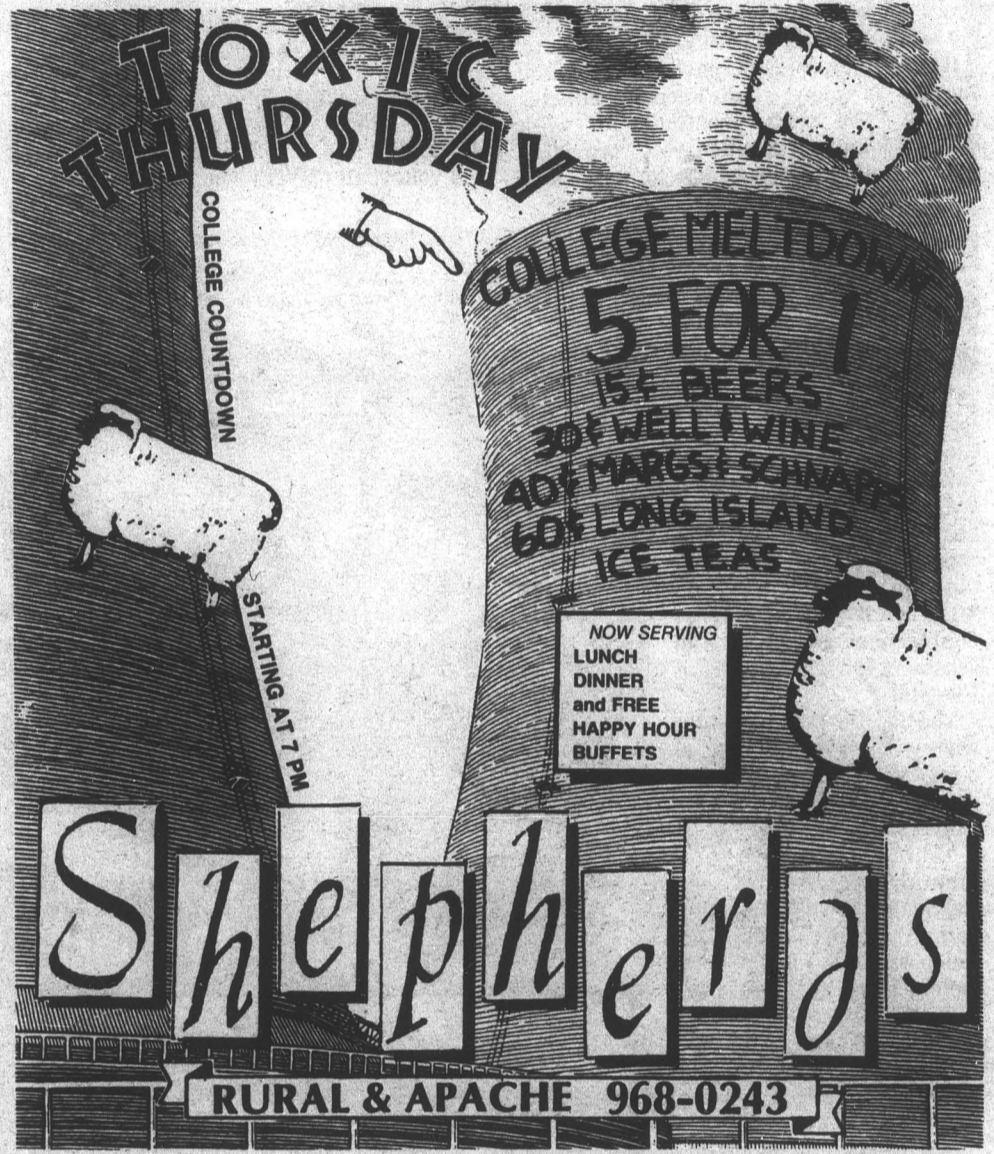 TOXIC
THURSDAY
COLLEGE COUNTDOWN
STARTING AT 7 PM
COLLEGE MELTDOWN
5 FOR 1
15¢ BEERS
30¢ WELL & WINE
40¢ MARGS & SCHNAPPS
60¢ LONG ISLAND
ICE TEAS
NOW SERVING
LUNCH
DINNER
and FREE
HAPPY HOUR
BUFFETS
Shepherds
RURAL & APACHE 968-0243